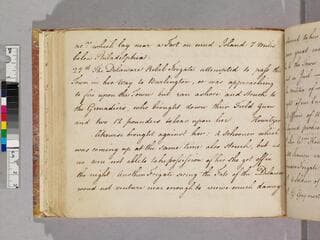 which lay near a Fort on mud Island 7 miles
below Philadelphia
27th The Delaware Rebel Frigate attempted to pass the
Town in her way to Burlington, or was approaching
to fire upon the Town but ran ashore and Struck to
the Grenadiers, who brought down their Field Guns
and two 12 pounders to bear upon her
likewise brought against her. A Schooner which
was coming up at the same time also Struck, but as
we were not able to take possession of her She got off in
the night. Another Frigate seeing the Fate of the Delaware
would not venture near enough to receive much damage